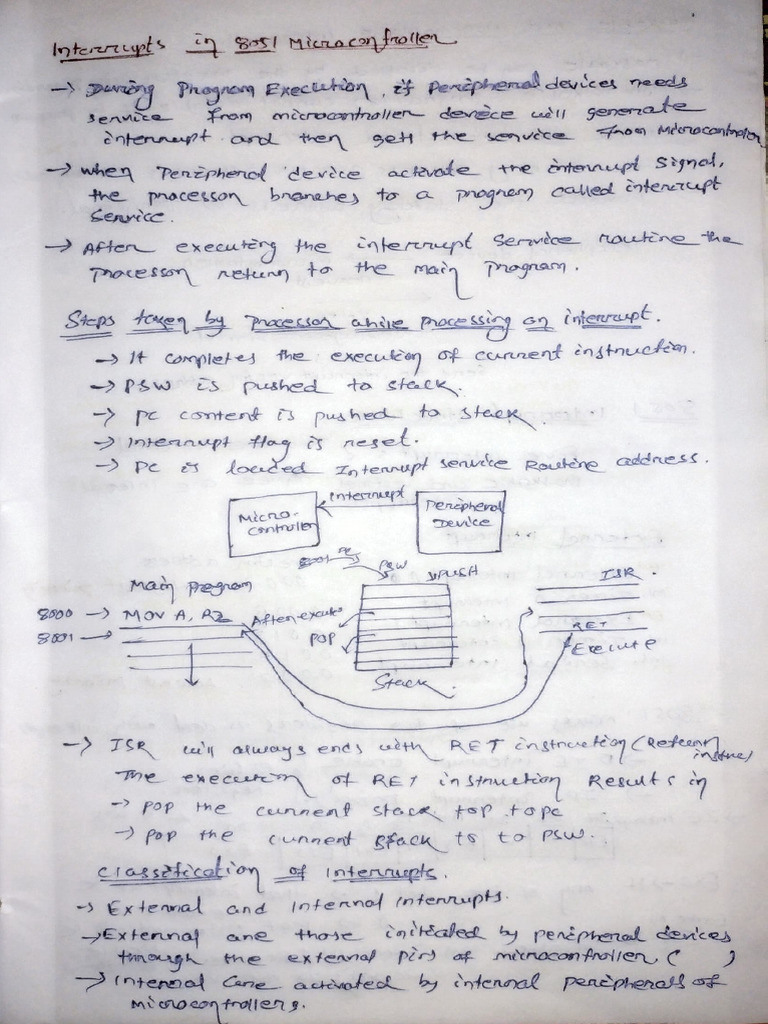 Interrupts in 8051 Microcontroller
→ During Program Execution, if peripheral devices needs
service from microcontroller device will generate
interrupt and then gett the service from Microcontroller
→ when Peripheral device activate the interrupt signal,
the processor branches to a program called interrupt
service.
→ After executing the interrupt service routine the
processor return to the main program.
Steps taken by processor while processing an interrupt.
→ It completes the execution of current instruction.
→ PSW is pushed to stack.
→ PC content is pushed to stack
→ Interrupt flag is reset.
→ PC is loaded Interrupt service Routine address.
Micro-
controller
interrupt
Peripheral
Device
PSW
PUSH
ISR.
Main program
8000 → MOV A, R2
8001 →
After execute
POP
Stack
RET
Execute
→ ISR will always ends with RET instruction (Return
The execution of RET instruction Results in
→ POP the current stack top to PC
→ POP the current stack to to PSW.
Classification of Interrupts.
→ External and Internal Interrupts.
→ External are those initiated by peripheral devices
through the external pins of microcontroller, ( )
→ Internal are activated by internal peripherals of
microcontrollers.